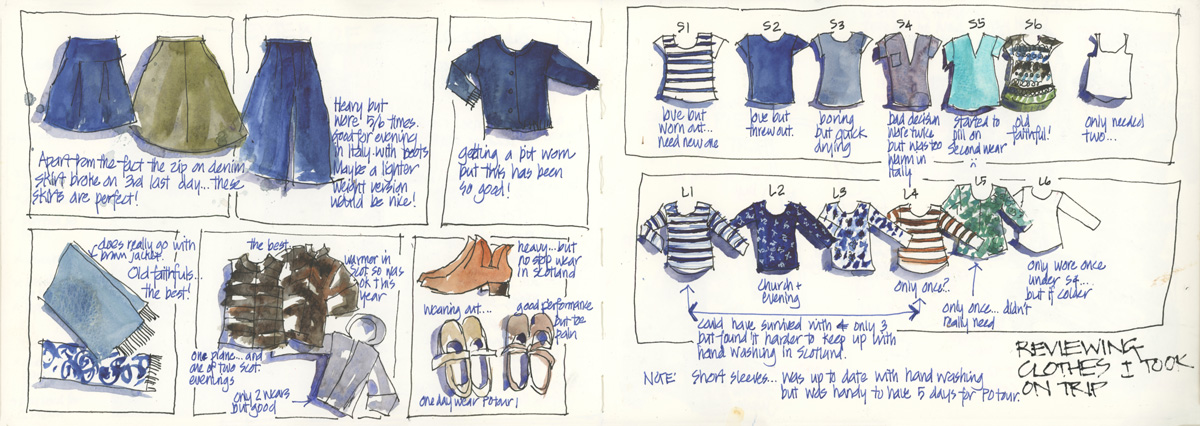 Apart from the fact the zip on denim
skirt broke on 3rd last day... these
skirts are perfect!
Heavy but
wore 5/6 times.
Good for evening
in Italy with boots
Maybe a lighter
weight version
would be nice!
getting a bit worn
but this has been
so good!
does really go with
brown jacket.
Old faithfuls...
the best!
the best
warmer in
Scot so was
ok this
year
one plane... and
one of two Scot.
evenings
only 2 wears
but good
heavy... but
no stop wear
in Scotland
wearing out...
good performance
but too
plain
one day wear Potour!
S1 S2 S3 S4 S5 S6
love but
worn out...
need new one
love but
threw out.
boring
but quick
drying
bad decision
wore twice
but was too
warm in
Italy
started to
pill on
second wear
old
faithful!
only needed
two...
L1 L2 L3 L4 L5 L6
church +
evening
only once?.
only once... didn't
really need
only wore once
under S4...
but if colder
could have survived with only 3
but found it harder to keep up with
hand washing in Scotland.
NOTE: Short sleeves... was up to date with hand washing
but was handy to have 5 days for Potour.
REVIEWING
CLOTHES I TOOK
ON TRIP